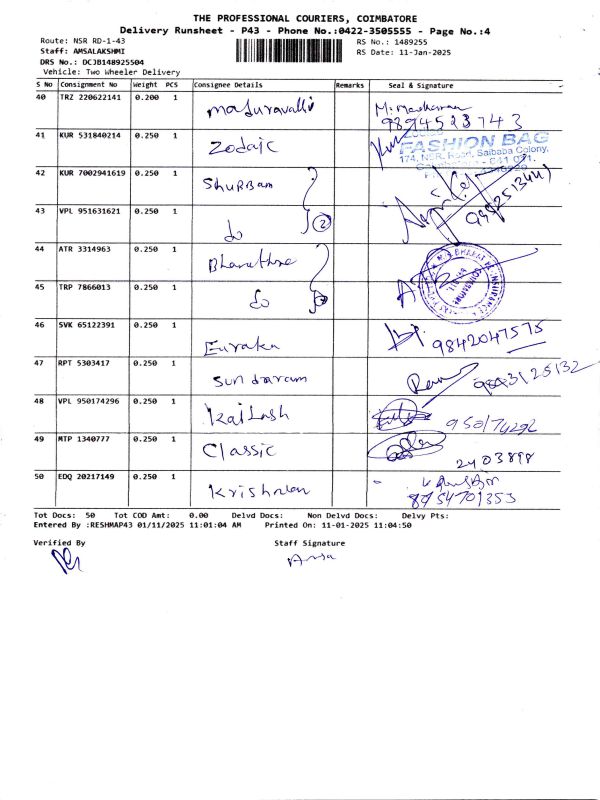 THE PROFESSIONAL COURIERS, COIMBATORE
Delivery Runsheet - P43 - Phone No.:0422-3505555 - Page No.:4
Route: NSR RD-1-43 RS No.: 1489255
Staff: AMSALAKSHMI RS Date: 11-Jan-2025
DRS No.: DCJB148925504
Vehicle: Two Wheeler Delivery
S No Consignment No Weight PCS Consignee Details Remarks Seal & Signature
40 TRZ 220622141 0.200 1 maduravalli
9894523743
41 KUR 531840214 0.250 1 Zodaic
FASHION BAG
174, NSR. Road, Saibaba Colony,
42 KUR 7002941619 0.250 1 Shubbam
43 VPL 951631621 0.250 1 do 2
44 ATR 3314963 0.250 1
45 TRP 7866013 0.250 1 do
46 SVK 65122391 0.250 1 Euraka 9842047575
47 RPT 5303417 0.250 1 Sundaram 9843125132
48 VPL 950174296 0.250 1 Kailash 950174292
49 MTP 1340777 0.250 1 Classic 2403898
50 EDQ 20217149 0.250 1 Krishnan
8954701353
Tot Docs: 50 Tot COD Amt: 0.00 Delvd Docs: Non Delvd Docs: Delvy Pts:
Entered By :RESHMAP43 01/11/2025 11:01:04 AM Printed On: 11-01-2025 11:04:50
Verified By Staff Signature
Amsa